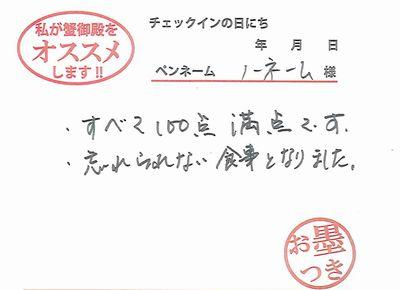 私が蟹御殿を
オススメ
します!!
チェックインの日にち
年 月 日
ペンネーム ノーネーム 様
・すべて100点 満点です.
・忘れられない食事となりました。
お墨
つき